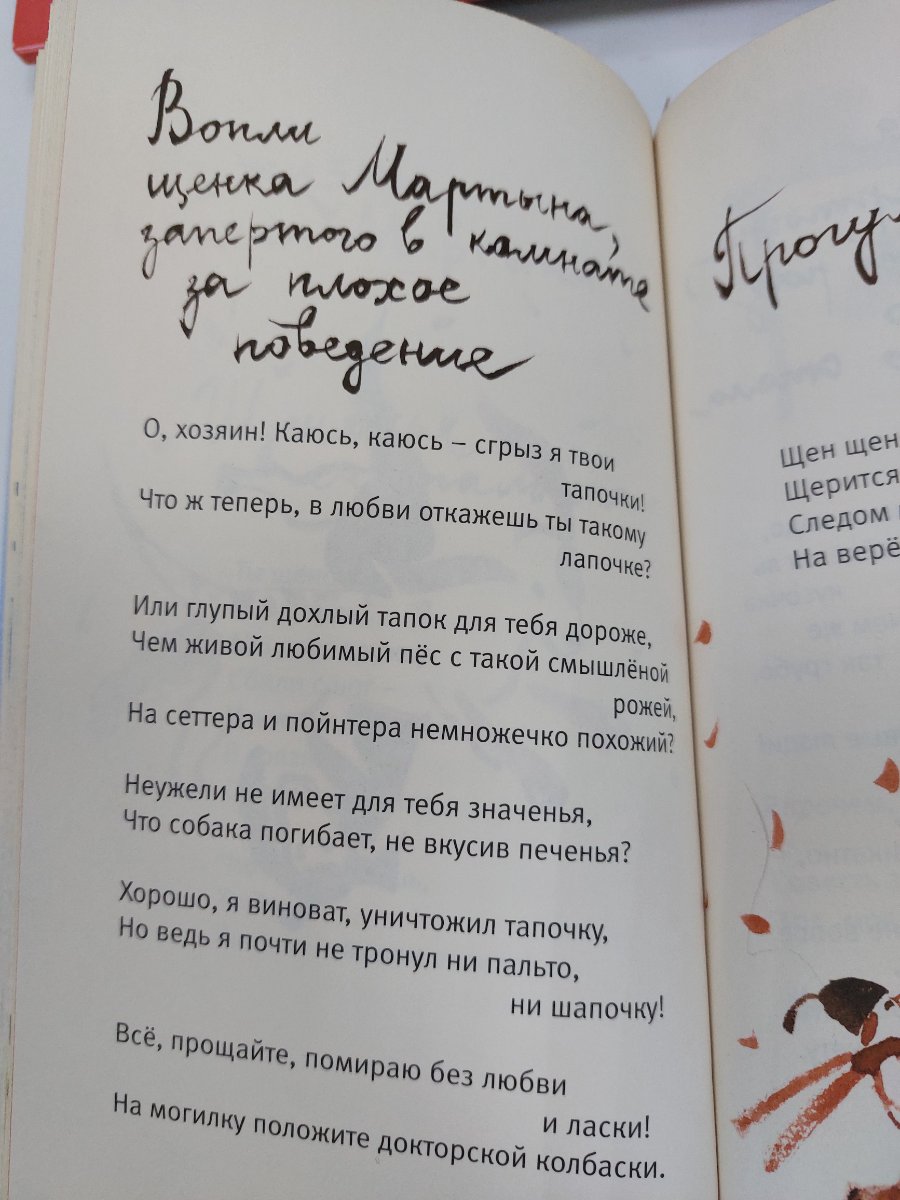 Вопли
щенка Мартына,
запертого в комнате
за плохое
поведение
О, хозяин! Каюсь, каюсь – сгрыз я твои
тапочки!
Что ж теперь, в любви откажешь ты такому
лапочке?
Или глупый дохлый тапок для тебя дороже,
Чем живой любимый пёс с такой смышлёной
рожей,
На сеттера и пойнтера немножечко похожий?
Неужели не имеет для тебя значенья,
Что собака погибает, не вкусив печенья?
Хорошо, я виноват, уничтожил тапочку,
Но ведь я почти не тронул ни пальто,
ни шапочку!
Всё, прощайте, помираю без любви
и ласки!
На могилку положите докторской колбаски.
Прогул
Щен щен
Щерится
Следом
На верё